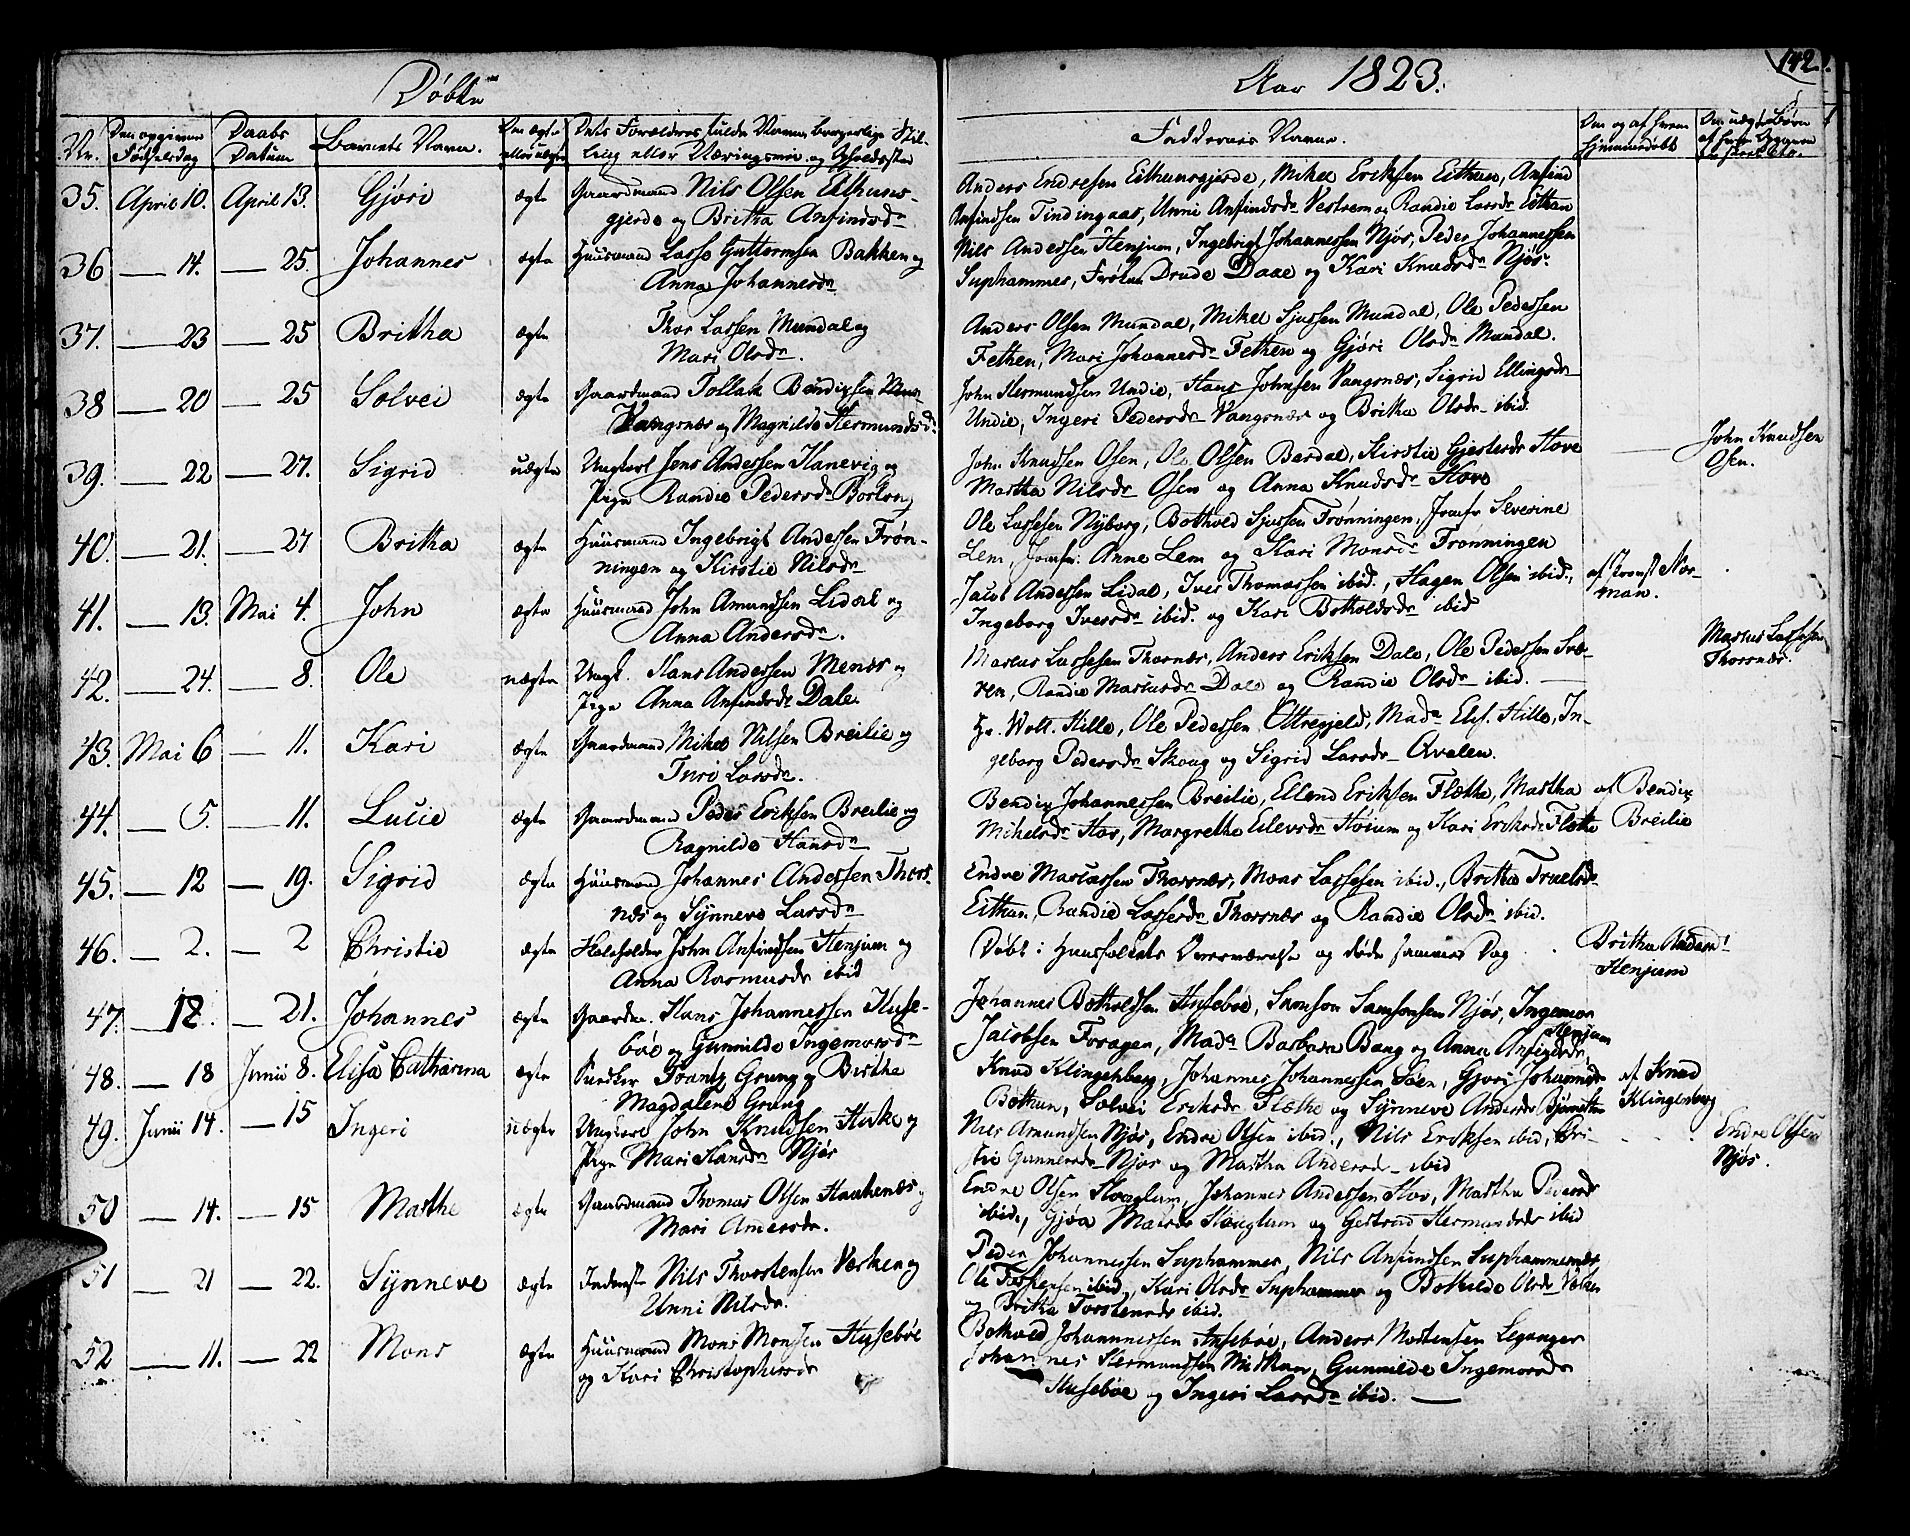 Døbte
Aar 1823.
142.
Nr.
Den opgivne Fødselsdag
Daabs Datum
Barnets Navn.
Om ægte eller uægte
Dets Forældres fulde Navne, borgerlige Stilling eller Næringsvei og Opholdssted
Faddernes Navne.
Om og af hvem hjemmedøbt
35. April 10. April 13. Gjøri ægte Gaardmand Nils Olsen Eithuns-
gjerde og Britha Ansindsdr
Anders Endresen Eithunsgjerde, Mikel Eriksen Eithun, Ansind
Ansindsen Tindingaas, Unni Ansindsdr Vestrem og Randie Larsdr Eithun
36 — 14. — 25. Johannes ægte Huusmand Lasse Guttormsen Bakken og
Anna Johannesdr
Nils Andersen Henjum, Ingebrigt Johannessen Njøs, Peder Johannessen
Suphammer, Frøken Drude Daae og Kari Knudsdr Njøs.
37. — 23 — 25 Britha ægte Thor Larsen Mundal og
Mari Olsdr.
Anders Olsen Mundal, Mikel Sjursen Mundal, Ole Pedersen
Fethen, Mari Johannesdr Fethen og Gjøri Olsdr Mundal.
38 — 20 — 25 Solvei ægte Gaardmand Tollak Bendixsen
Vangsnæs og Magnilde Hermundsdr
John Hermundsen Undie, Hans Johnsen Vangsnæs, Sigrid Ellingsdr
Undie, Ingeri Pedersdr Vangsnæs og Britha Olsdr ibid.
39. — 22 — 27. Sigrid uægte Ungkarl Jens Andersen Hanevig og
Pige Randie Pedersdr
John Knudsen Osen, Ole Olsen Bardal, Kirstie Hove
Martha Nilsdr Osen og Anna Knudsdr Hove
John Knudsen
Osen.
40. — 21. — 27 Britha ægte Huusmand Ingebrigt Andersen Frøn-
ningen og Kirstie Nilsdr
Ole Larsen Nyborg, Bothved Sjursen Frønningen, Jomfr Severine
Lem, Jomfr. Anne Lem og Kari Monsdr Frønningen
41. — 13. Mai 4. John ægte Huusmand John Amundsen Lidal og
Anna Andersdr.
Jacob Andersen Lidal, Iver Thomassen ibid., Hagen Olsen ibid.,
Ingeborg Iversdr ibid. og Kari Botholdsdr ibid
af Provst Nor-
man.
42. — 24. — 8. Ole uægte Ungk. Hans Andersen Menæs og
Pige Anna Ansindsdr Dale.
Marcus Larsesen Thorsnæs, Anders Eriksen Dale, Ole Pedersen Svæ-
ren, Randie Marcusdr Dale og Randie Olsdr ibid. —
Marcus Larsesen
Thorsnæs.
43. Mai 6 — 11. Kari ægte Gaardmand Mikel Nilsen Breilie og
Turi Larsdr.
Hr. Wolt. Hille, Ole Pedersen Ottregjeld, Mad. Els. Hille, In-
geborg Pedersdr Skoug og Sigrid Larsdr Qvalen.
44. — 5. — 11. Lucie ægte Gaardmand Peder Eriksen Breilie og
Ragnilde Hansdr
Bendix Johannessen Breilie, Ellend Eriksen Flæthe, Martha
Mikelsdr Hov, Margrethe Elevsdr Høium og Kari Eriksdr Flæthe
af Bendix
Breilie
45. — 12 — 19. Sigrid ægte Huusmand Johannes Andersen Thors-
næs og Synneve Larsdr
Endre Marcussen Thorsnæs, Mons Larsesen ibid., Britha Truelsdr
Eithun, Randie Larsesdr Thorsnæs og Randie Olsdr ibid.
46. — 2. — 2 Christie ægte John Ansindsen Henjum og
Anna Rasmusdr ibid
Døbt i Huusfolkets Overværelse og døde samme Dag
Britha Andersdr
Henjum
47. — 12. — 21. Johannes ægte Gaardm. Hans Johannessen Huse-
bøe og Gunnilde Ingemorsdr
Johannes Botholdsen Husebøe, Samson Samsonsen Njøs, Ingemor
Jacobsen Foragen, Mad. Barbara Bang og Anna Ansindsdr Henjum
48. — 18 Junii 8. Elisa Catharina ægte Frantz Grung og Birthe
Magdalene Grung
Knud Klingenberg, Johannes Johannessen Søen, Gjøri Johannesdr
Bothun, Solvei Eriksdr Flæthe og Synneve Andersdr
af Knud
Klingenberg
49. Junii 14. — 15 Ingeri uægte Ungkarl John Knudsen og
Pige Mari Hansdr Njøs
Nils Amundsen Njøs, Endre Olsen ibid., Nils Eriksen ibid, Chri-
stie Gunnersdr Njøs og Martha Andersdr ibid
Endre Olsen
Njøs.
50 — 14. — 15 Marthe ægte Gaardmand Thomas Olsen Haukenæs og
Mari Andersdr.
Endre Olsen Houglum, Johannes Andersen Hov, Martha Pedersdr
ibid., Gjøa Matsdr Houglum og Gertrud Hermundsdr ibid
51 — 21 — 22. Synneve ægte Inderste Nils Thorstensen Værken og
Unni Nilsdr.
Peder Johannessen Suphammer, Nils Ansindsen Suphammernæs,
Ole Torstensen ibid, Kari Olsdr Suphammer og Bothilde Olsdr
og Britha Torstensdr ibid.
52 — 11. — 22 Mons ægte Huusmand Mons Monsen Husebøe
og Kari Christophersdr
Bothved Johannessen Husebøe, Anders Mortensen Leganger
Johannes Hermundsen Nidtun, Gunnilde Ingemorsdr
Husebøe og Ingeri Larsdr ibid. —